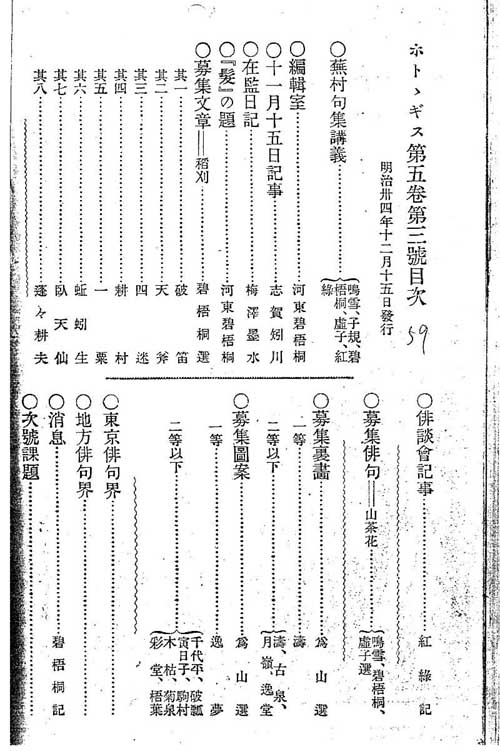 ホトヽギス第五卷第三號目次
明治卅四年十二月十五日發行
59
○蕪村句集講義………鳴雪、子規、碧梧桐、虛子、紅綠
○編輯室………河東碧梧桐
○十一月十五日記事………志賀矧川
○在監日記………梅澤墨水
○『髮』の題………河東碧梧桐
○募集文章＝稻刈………碧梧桐選
其一………破笛
其二………天斧
其三………四迷
其四………耕村
其五………一粟
其六………蚯蚓生
其七………臥天仙
其八………蓬々耕夫
○俳談會記事………紅綠記
○募集俳句＝山茶花………鳴雪、碧梧桐、虛子選
○募集裏畫………爲山選
一等………濤
二等以下………濤、古泉、月嶺、逸堂
○募集圖案………爲山選
一等………逸夢
二等以下………千代平、破瓢、寅日子、駒村、木枯、菊泉、彩堂、梧葉
○東京俳句界………
○地方俳句界………
○消息………碧梧桐記
○次號課題………